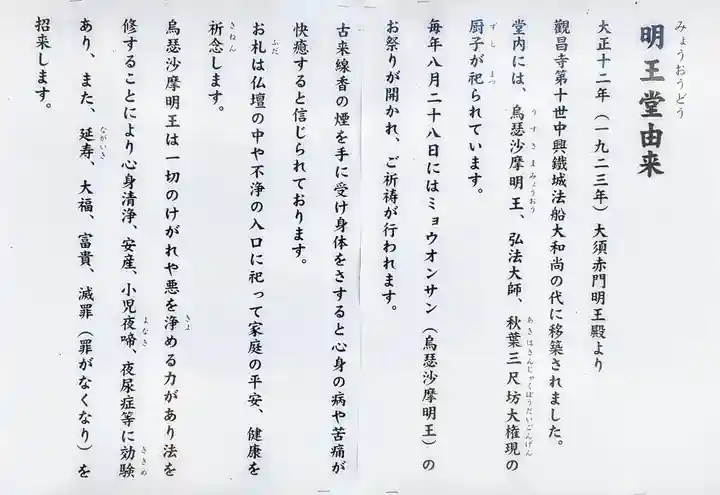 明王堂由来
大正十二年（一九二三年）大須赤門明王殿より
觀昌寺第十世中興鐵城法船大和尚の代に移築されました。
堂内には、烏瑟沙摩明王、弘法大師、秋葉三尺坊大権現の
厨子が祀られています。
毎年八月二十八日にはミョウオンサン（烏瑟沙摩明王）の
お祭りが開かれ、ご祈祷が行われます。
古来線香の煙を手に受け身体をさすると心身の病や苦痛が
快癒すると信じられております。
お札は仏壇の中や不浄の入口に祀って家庭の平安、健康を
祈念します。
烏瑟沙摩明王は一切のけがれや悪を浄める力があり法を
修することにより心身清浄、安産、小児夜啼、夜尿症等に効験
あり、また、延寿、大福、富貴、滅罪（罪がなくなり）を
招来します。